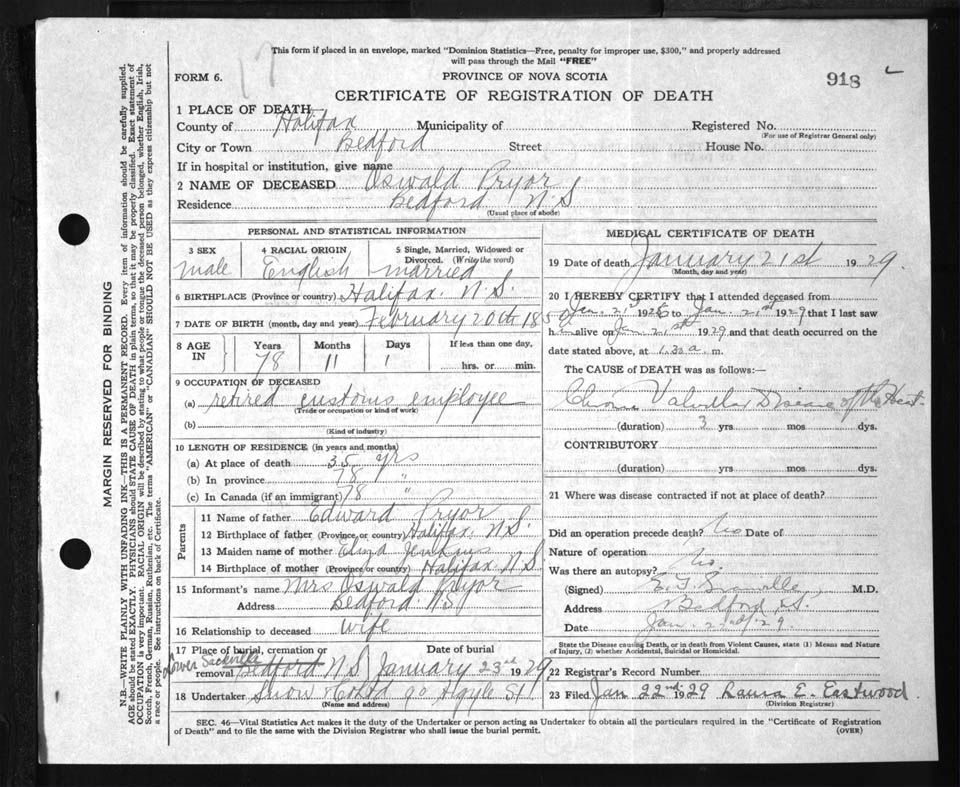 This form if placed in an envelope, marked "Dominion Statistics—Free, penalty for improper use, $300," and properly addressed
will pass through the Mail "FREE"
17
FORM 6.
PROVINCE OF NOVA SCOTIA
918
CERTIFICATE OF REGISTRATION OF DEATH
1 PLACE OF DEATH
County of Halifax Municipality of Registered No.
(For use of Registrar General only)
City or Town Bedford Street House No.
If in hospital or institution, give name
2 NAME OF DECEASED Oswald Pryor
Residence Bedford N.S
(Usual place of abode)
PERSONAL AND STATISTICAL INFORMATION
3 SEX 4 RACIAL ORIGIN 5 Single, Married, Widowed or
Divorced. (Write the word)
male English married
6 BIRTHPLACE (Province or country) Halifax. N.S.
7 DATE OF BIRTH (month, day and year) February 20th 1850
8 AGE IN Years Months Days If less than one day,
78 11 1 hrs. or min.
9 OCCUPATION OF DECEASED
(a) retired customs employee
(Trade or occupation or kind of work)
(b)
(Kind of industry)
10 LENGTH OF RESIDENCE (in years and months)
(a) At place of death 35 yrs
(b) In province 78 "
(c) In Canada (if an immigrant) 78 "
Parents
11 Name of father Edward Pryor
12 Birthplace of father (Province or country) Halifax. N.S.
13 Maiden name of mother
14 Birthplace of mother (Province or country) Halifax N.S
15 Informant's name Mrs Oswald Pryor
Address Bedford. NS
16 Relationship to deceased wife
17 Place of burial, cremation or Date of burial
Lower Sackville
removal Bedford N.S January 23rd 1929
18 Undertaker Snow & Co Ltd 90 Argyle St
(Name and address)
MEDICAL CERTIFICATE OF DEATH
19 Date of death January 21st 1929.
(Month, day and year)
20 I HEREBY CERTIFY that I attended deceased from
Jan. 21st 1926 to Jan 21st 1929 that I last saw
h alive on Jan 21st 1929 and that death occurred on the
date stated above, at 1.30 a. m.
The CAUSE of DEATH was as follows:—
Chron Valvular Disease of the Heart
(duration) 3 yrs mos dys.
CONTRIBUTORY
(duration) yrs mos dys.
21 Where was disease contracted if not at place of death?
Did an operation precede death? No Date of
Nature of operation
Was there an autopsy? No.
(Signed) M.D.
Address Bedford
Date Jan. 29.
State the Disease causing Death, or in death from Violent Causes, state (1) Means and Nature
of Injury, (2) whether Accidental, Suicidal or Homicidal.
22 Registrar's Record Number
23 Filed Jan 22nd 1929 Laura E. Eastwood
(Division Registrar)
SEC. 46—Vital Statistics Act makes it the duty of the Undertaker or person acting as Undertaker to obtain all the particulars required in the "Certificate of Registration
of Death" and to file the same with the Division Registrar who shall issue the burial permit.
(OVER)
MARGIN RESERVED FOR BINDING
N.B.—WRITE PLAINLY WITH UNFADING INK—THIS IS A PERMANENT RECORD. Every item of information should be carefully supplied.
AGE should be stated EXACTLY. PHYSICIANS should STATE CAUSE OF DEATH in plain terms, so that it may be properly classified. Exact statement of
OCCUPATION is very important. RACIAL ORIGIN will be described by stating to what people or tongue the deceased person belonged, whether English, Irish,
Scotch, French, German, Russian, Ruthenian, etc. The terms "AMERICAN" or "CANADIAN" SHOULD NOT BE USED as they express citizenship but not
a race or people. See instructions on back of Certificate.